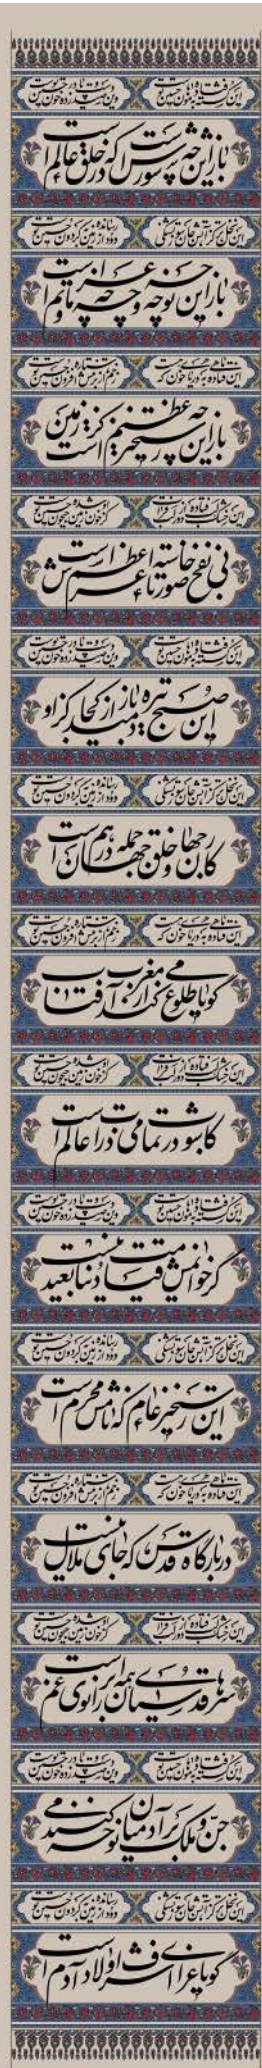 این کشته فتاده به هامون حسین توست وین صید دست و پا زده در خون حسین توست
باز این چه شورش است که در خلق عالم است
این نخل تر کز آتش جان سوز تشنگی دود از زمین رسانده به گردون حسین توست
باز این چه نوحه و چه عزا و چه ماتم است
این ماهی فتاده به دریای خون که هست زخم از ستاره بر تنش افزون حسین توست
باز این چه رستخیز عظیم است کز زمین
این خشک لب فتاده دور از لب فرات کز خون او زمین شده جیحون حسین توست
بی نفخ صور خاسته تا عرش اعظم است
این کشته فتاده به هامون حسین توست وین صید دست و پا زده در خون حسین توست
این صبح تیره باز دمید از کجا کزو
این نخل تر کز آتش جان سوز تشنگی دود از زمین رسانده به گردون حسین توست
کار جهان و خلق جهان جمله در هم است
این ماهی فتاده به دریای خون که هست زخم از ستاره بر تنش افزون حسین توست
گویا طلوع می کند از مغرب آفتاب
این خشک لب فتاده دور از لب فرات کز خون او زمین شده جیحون حسین توست
کاشوب در تمامی ذرات عالم است
این کشته فتاده به هامون حسین توست وین صید دست و پا زده در خون حسین توست
گر خوانمش قیامت دنیا بعید نیست
این نخل تر کز آتش جان سوز تشنگی دود از زمین رسانده به گردون حسین توست
این رستخیز عام که نامش محرم است
این ماهی فتاده به دریای خون که هست زخم از ستاره بر تنش افزون حسین توست
در بارگاه قدس که جای ملال نیست
این خشک لب فتاده دور از لب فرات کز خون او زمین شده جیحون حسین توست
سرهای قدسیان همه بر زانوی غم است
این کشته فتاده به هامون حسین توست وین صید دست و پا زده در خون حسین توست
جن و ملک بر آدمیان نوحه می کنند
این نخل تر کز آتش جان سوز تشنگی دود از زمین رسانده به گردون حسین توست
گویا عزای اشرف اولاد آدم است